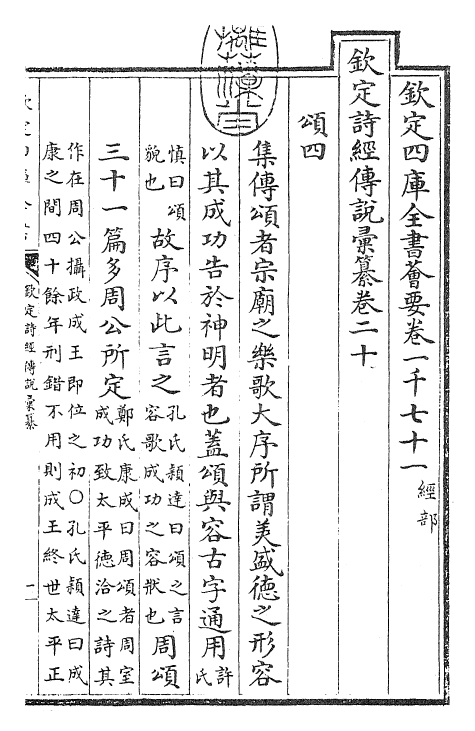 欽定四庫全書薈要卷一千七十一 經部
欽定詩經傳說彙纂卷二十
頌四
集傳頌者宗廟之樂歌大序所謂美盛德之形容
以其成功告於神明者也蓋頌與容古字通用許氏
慎曰頌貌也故序以此言之孔氏穎達曰頌之言容歌成功之容狀也周頌
三十一篇多周公所定鄭氏康成曰周頌者周室成功致太平德洽之詩其
作在周公攝政成王即位之初○孔氏穎達曰成
康之間四十餘年刑錯不用則成王終世太平正
欽定詩經傳說彙纂
一